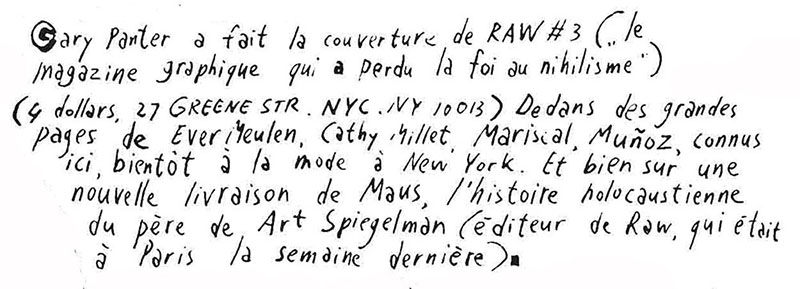 Gary Panter a fait la couverture de RAW #3 („le
magazine graphique qui a perdu la foi au nihilisme")
(4 dollars, 27 GREENE STR. NYC. NY 10013) Dedans des grandes
pages de Ever Meulen, Cathy Millet, Mariscal, Muñoz, connus
ici, bientôt à la mode à New York. Et bien sur une
nouvelle livraison de Maus, l'histoire holocaustienne
du père de Art Spiegelman (éditeur de Raw, qui était
à Paris la semaine dernière).